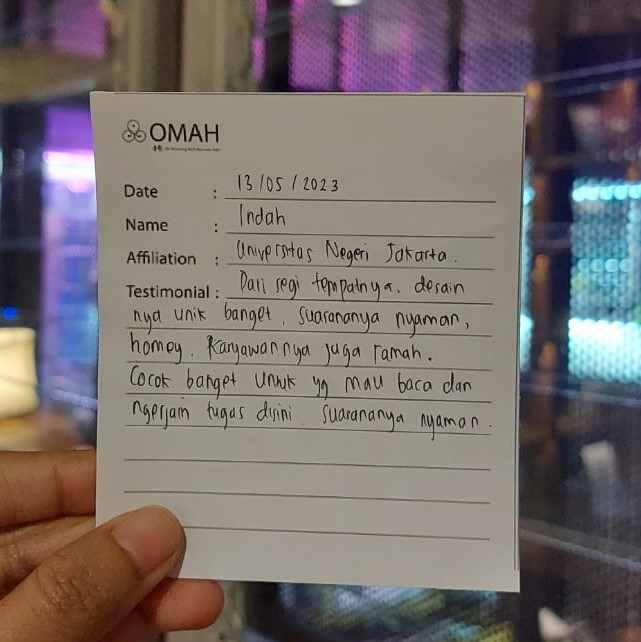 OMAH
Date : 13/05/2023
Name : Indah
Affiliation : Universitas Negeri Jakarta.
Testimonial : Dari segi tempatnya. desain
nya unik banget. suarananya nyaman,
homey. Karyawannya juga ramah.
Cocok banget untuk yg mau baca dan
ngerjain tugas disini. suarananya nyaman.